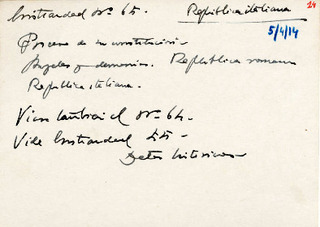 Cristiandad nº 65.
República italiana
24
5/4/14
Proceso de su constitución.
Angeles y demonios. República romana
República italiana.
nº 64.
Vide Cristiandad
Datos históricos